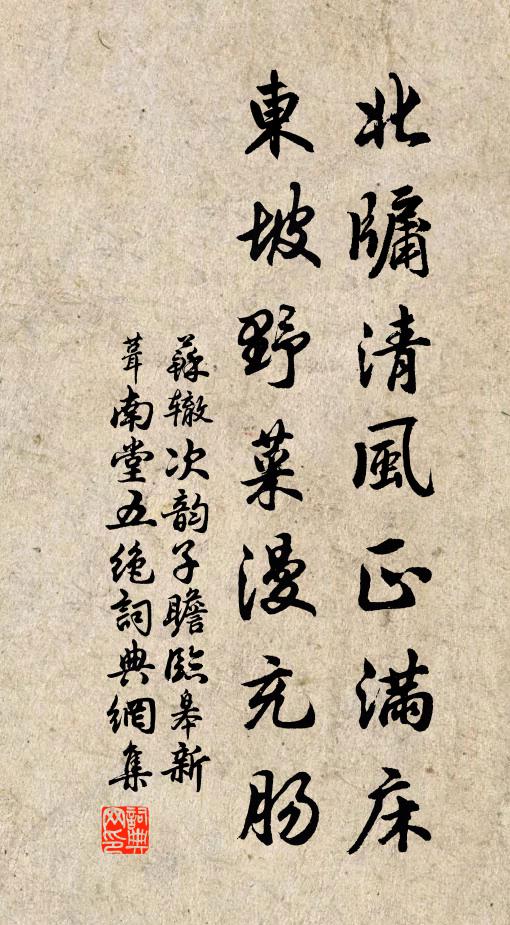 北牖清風正滿床
東坡野菜漫充肠
蘇辙次韵子瞻臨皋新
葺南堂五绝詞典網集
詞典
网印